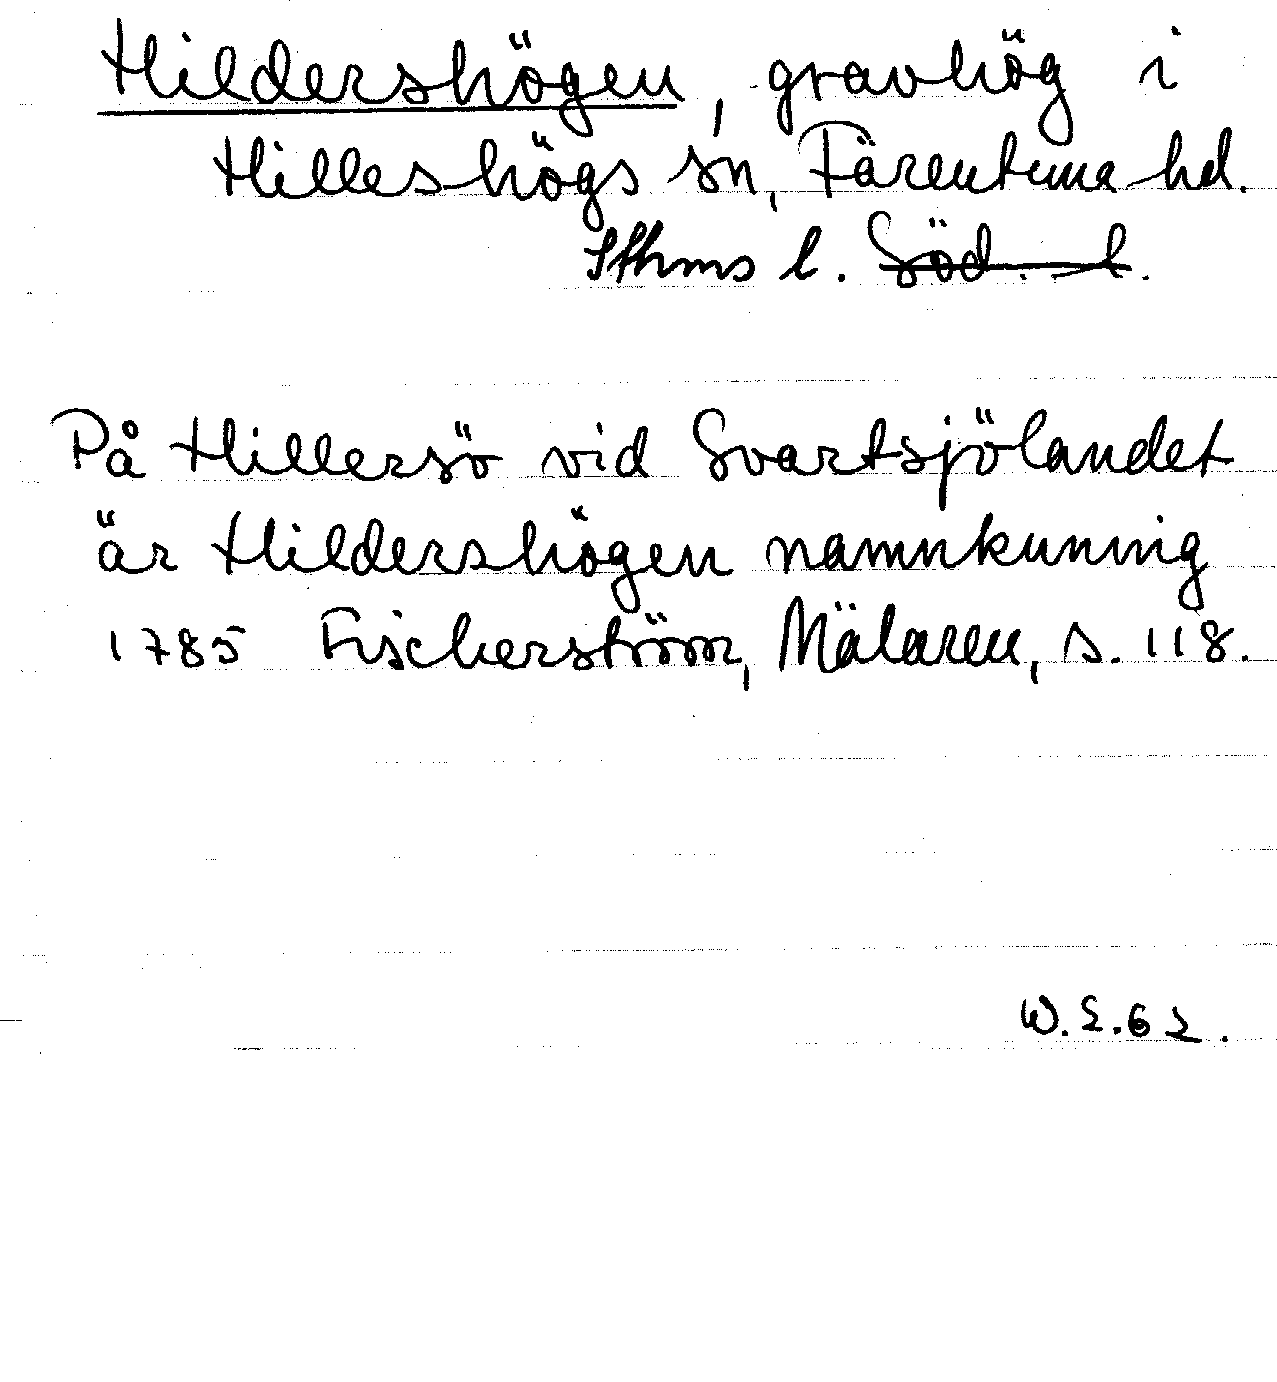 Hildershögen, gravhög i
Hilleshögs sn, Färentuna hd.
Sthms l. Söd. l.
På Hillersö vid Svartsjölandet
är Hildershögen namnkunnig
1785 Fischerström, Mälaren, s. 118.
W. S. 62.